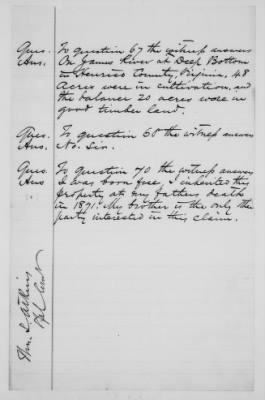 Ques. To question 67 the witness answers
Ans. On James River at Deep Bottom
in Henrico County, Virginia. 48
Acres were in cultivation, and
the balance 20 acres were in
good timber land.
Ques. To question 68 the witness answers
Ans. No. Sir.
Ques. To question 70 the witness answers
Ans I was born free, I inherited this
property at my fathers death
in 1871. My brother is the only the
party interested in this claim.